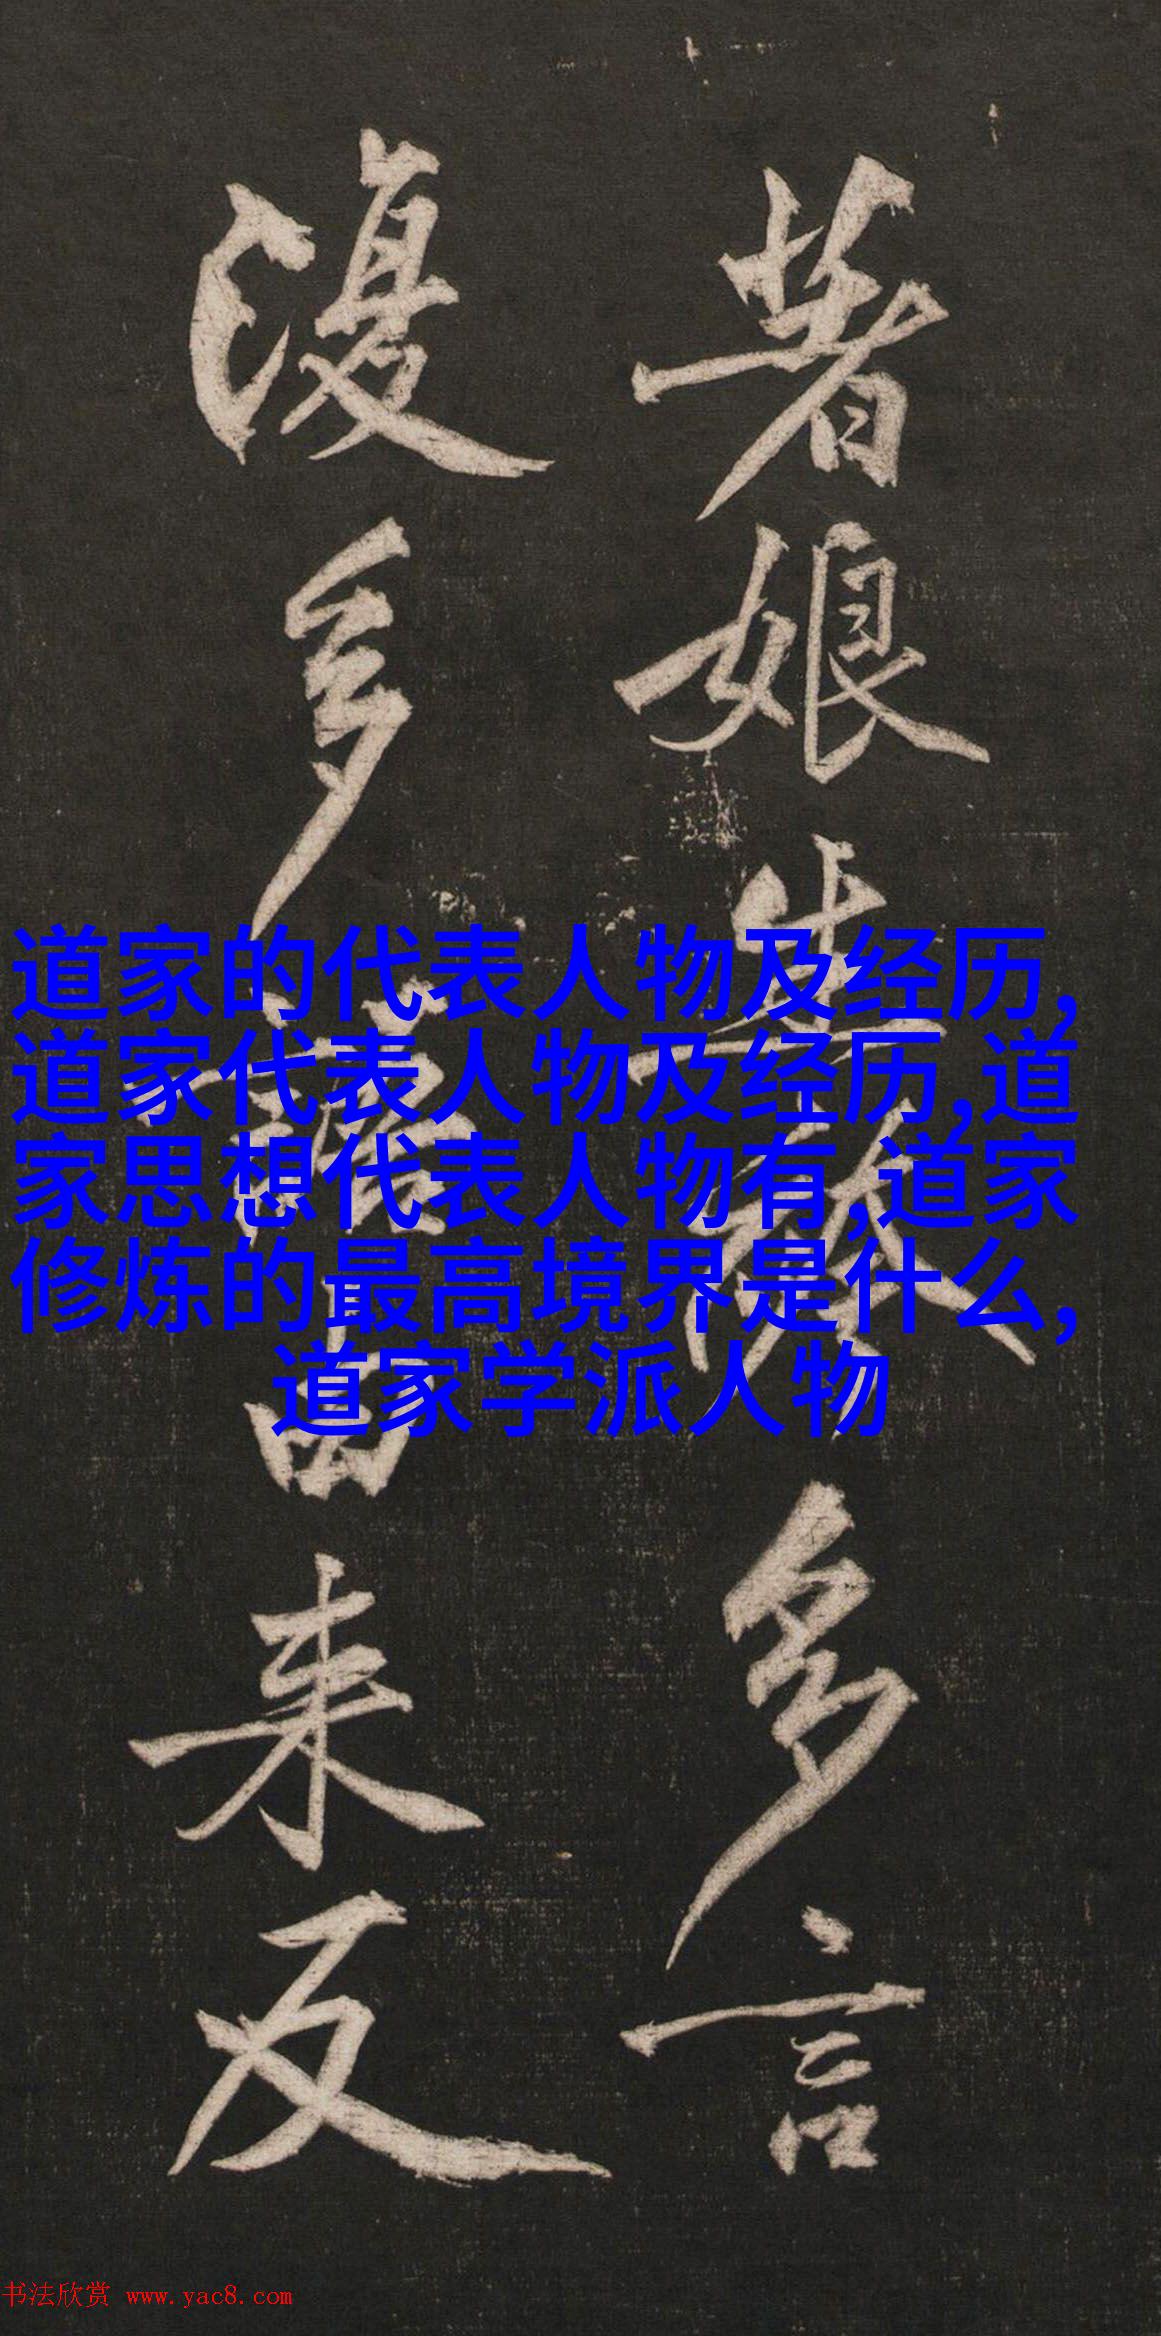 著娘生多言
多語由来反
道家的代表人物及经历,
道家代表人物及经历,道
家思想代表人物有,道家
修炼的最高境界是什么,
道家学派人物
书法欣赏 www.yac8.com